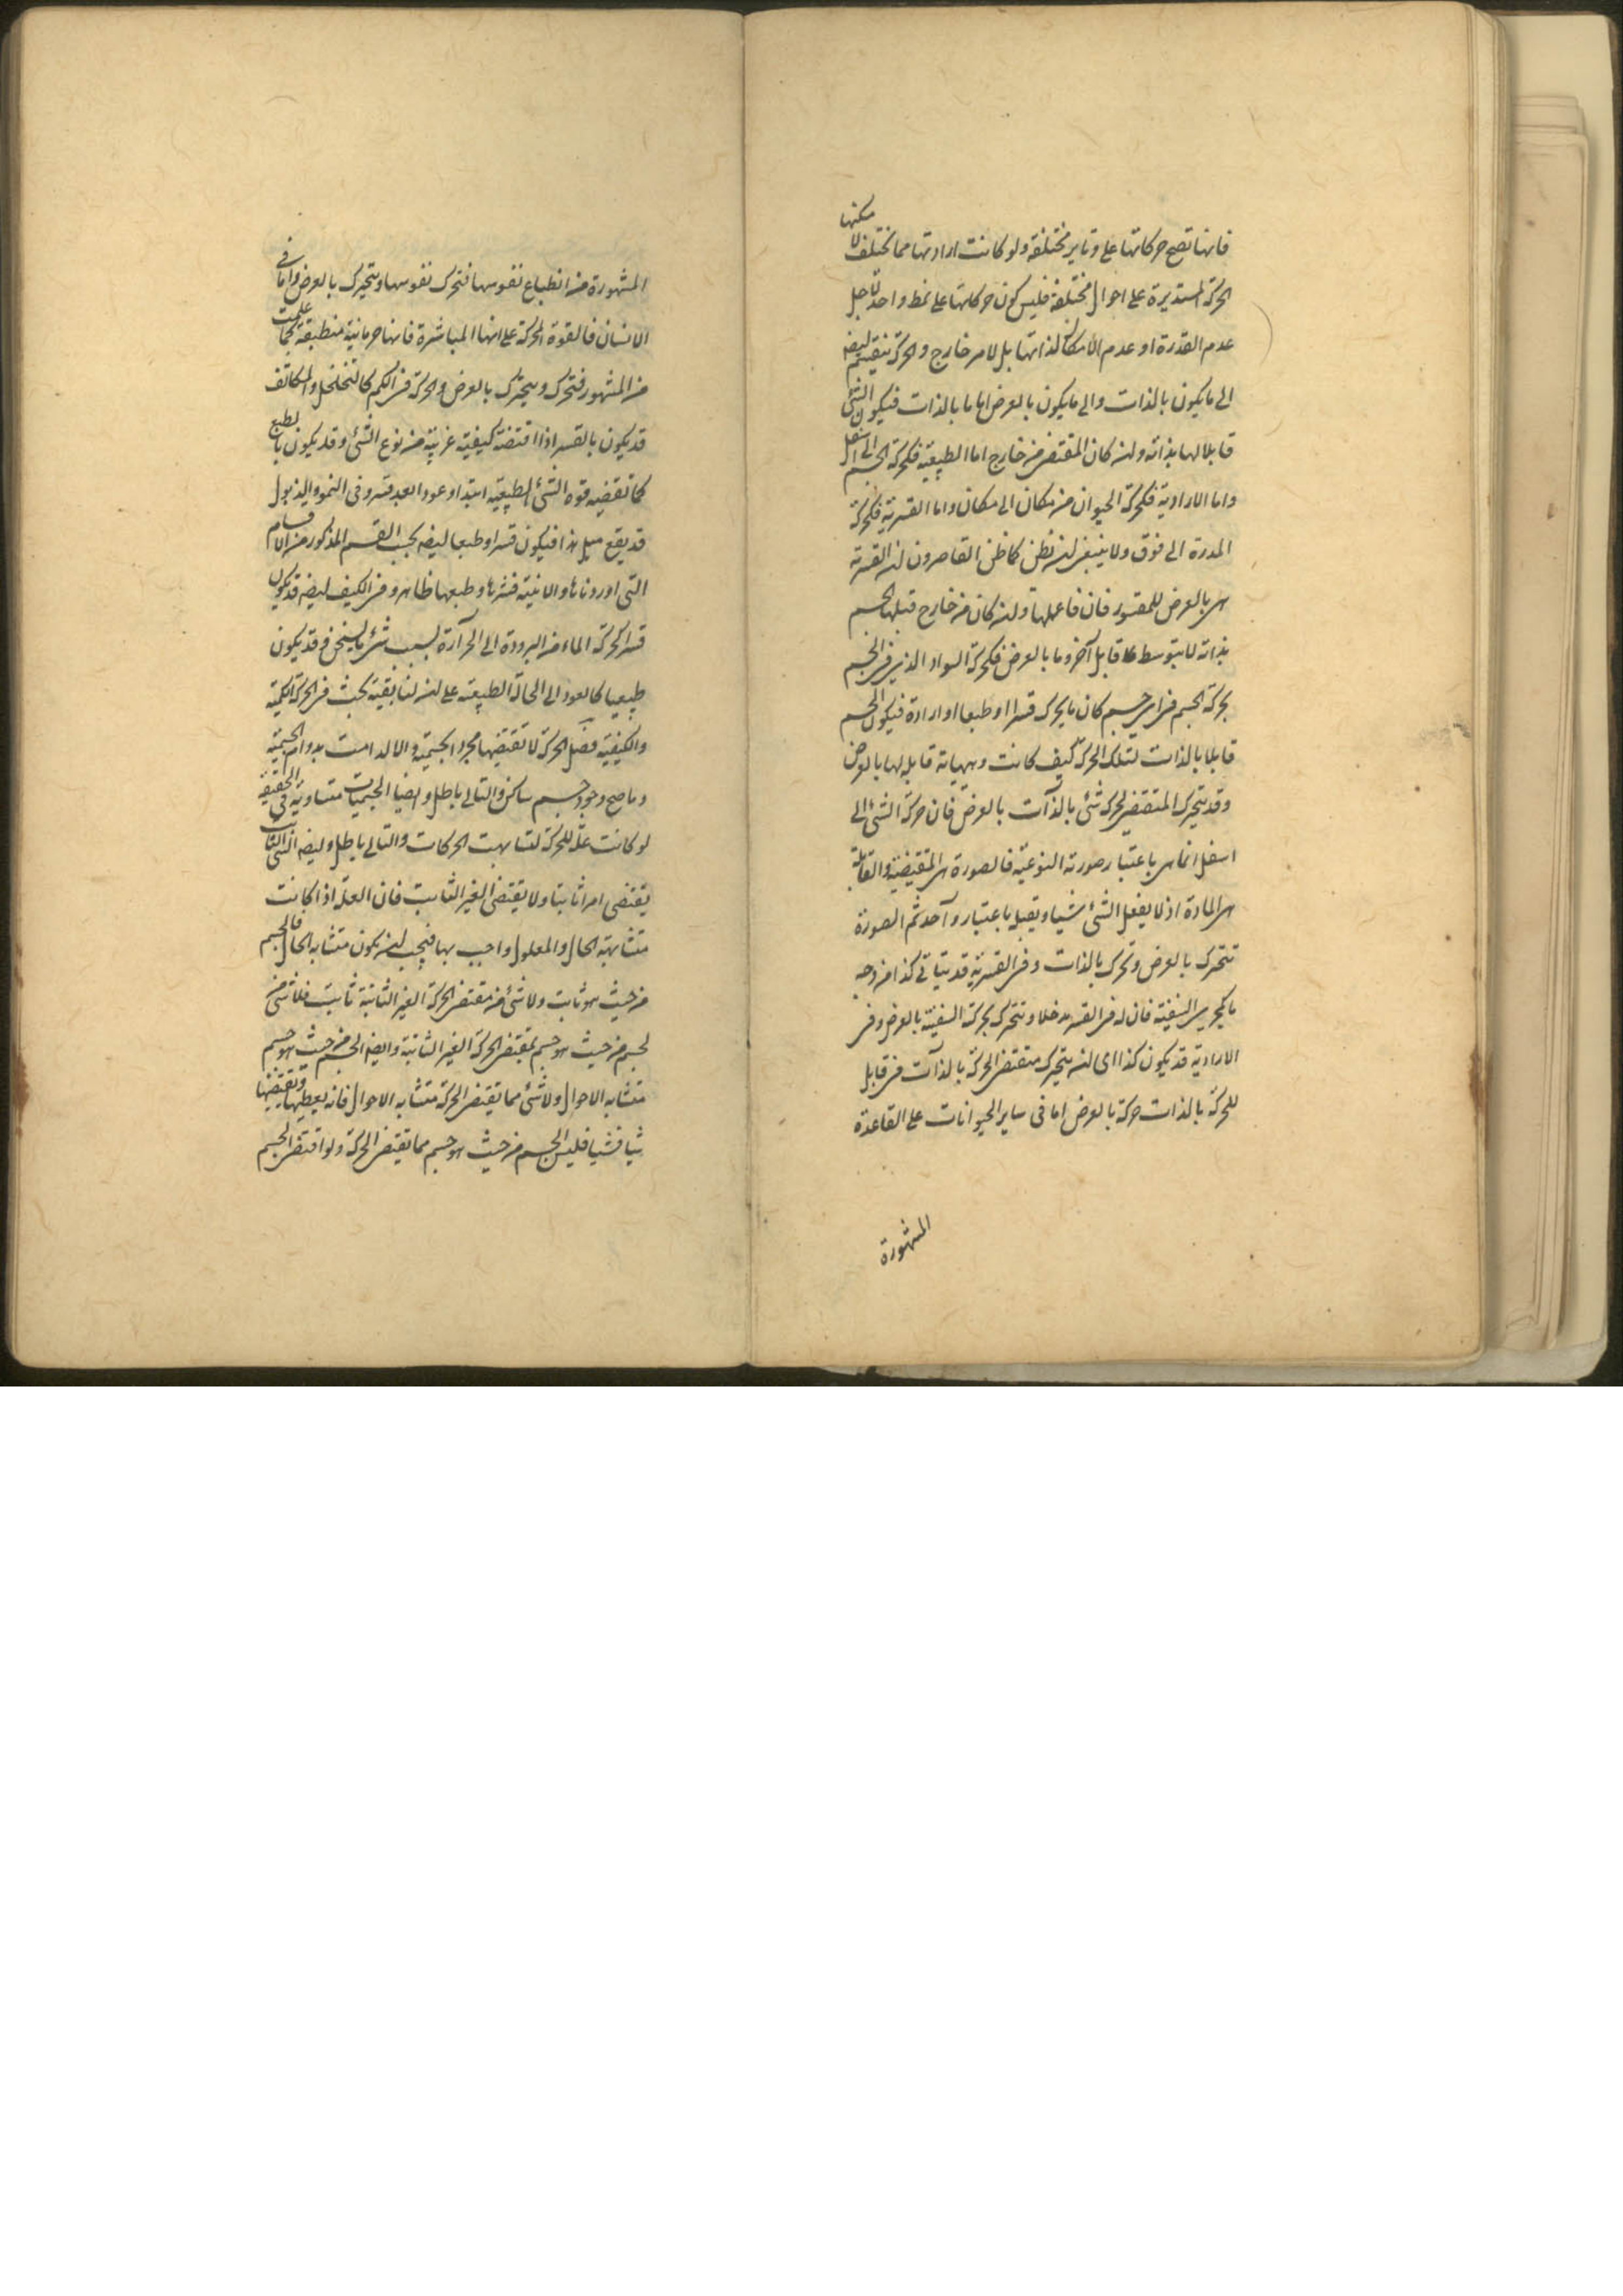 فانها تصح حركاتها على وتاير مختلفة ولو كانت ارادتها مما تختلف لا مكنها
الحركة المستديرة على احوال مختلفة فليس كون حركاتها على نمط واحد لاجل
عدم القدرة او عدم الامكان لذاتها بل لامر خارج والحركة ينقسم ايضا
الى ما يكون بالذات والى ما يكون بالعرض اما ما بالذات فيكون الشئ
قابلا لها بذاته وان كان المقتضى من خارج اما الطبيعية فكحركة الجسم الى اسفل
واما الارادية فكحركة الحيوان من مكان الى مكان واما القسرية فكحركة
المدرة الى فوق ولا ينبغى ان يظن كما ظن القاصرون ان القسرية
هى بالعرض للمقسور فان فاعلها وان كان من خارج قبلها الجسم
بذاته لا بتوسط قابل آخر وما بالعرض فكحركة السواد الذى فى الجسم
بحركة الجسم فى اى جسم كان ما يحرك قسرا او طبعا او ارادة فيكون الجسم
قابلا بالذات لتلك الحركة كيف كانت وهيأته قابلة لها بالعرض
وقد يتحرك المقتضى لحركة شئ بالذات بالعرض فان حركة الشئ الى
اسفل انما هى باعتبار صورته النوعية فالصورة هى المقتضية والقابلة
هى المادة اذ لا يفعل الشئ شيا ويقبل باعتبار واحد ثم الصورة
تتحرك بالعرض وتحرك بالذات وفى القسرية قد يتأتى كذا من وجه
ما كمجرى السفينة فان له فى القسر مدخلا ويتحرك بحركة السفينة بالعرض وفى
الارادية قد يكون كذا اى ان يتحرك مقتضى الحركة بالذات فى قابل
للحركة بالذات حركة بالعرض اما فى ساير الحيوانات على القاعدة
المشهورة
المشهورة من انطباع نفوسها فتحرك نفوسها ويتحرك بالعرض واما فى
الانسان فالقوة المحركة على انها المباشرة فانها جرمانية منطبقة كما علمت
من المشهور فتحرك ويتحرك بالعرض والحركة فى الكم كالتخلخل والتكاثف
قد يكون بالقسر اذا اقتضته كيفية غريبة من نوع الشئ وقد يكون بالطبع
كما تقتضيه قوة الشئ الطبيعية ابتدا او عودا بعد قسر وفى النمو والذبول
قد يقع مثل هذا فيكون قسرا وطبعا ايضا بحسب القسم المذكور من الاقسام
التى اوردناها والاينية قسرها وطبعها ظاهر وفى الكيف ايضا قد يكون
قسرا كحركة الماء من البرودة الى الحرارة بسبب شئ ما يسخن وقد يكون
طبيعيا كالعود الى الحالة الطبيعية على ان لنا بقية بحث فى الحركة الكمية
والكيفية فصل الحركة لا تقتضيها مجرد الجسمية والا لدامت بدوام الجسمية
وما صح وجود جسم ساكن والتالى باطل وايضا الجسميات متساوية فى الحقيقة
لو كانت علة للحركة لتشابهت الحركات والتالى باطل وايضا الشئ الثابت
يقتضى امرا ثابتا ولا يقتضى الغير الثابت فان العلة اذا كانت
متشابهة الحال والمعلول واجب بها فيجب ان يكون متشابه الحال فالجسم
من حيث هو ثابت ولا شئ من مقتضى الحركة الغير الثابتة ثابت فلا شئ من
الجسم من حيث هو جسم بمقتضى الحركة الغير الثابتة وايضا الجسم من حيث هو جسم
متشابه الاحوال ولا شئ مما يقتضى الحركة متشابه الاحوال فانه يعطيها ويقتضيها
شيا فشيا فليس الجسم من حيث هو جسم مما يقتضى الحركة ولو اقتضى الجسم